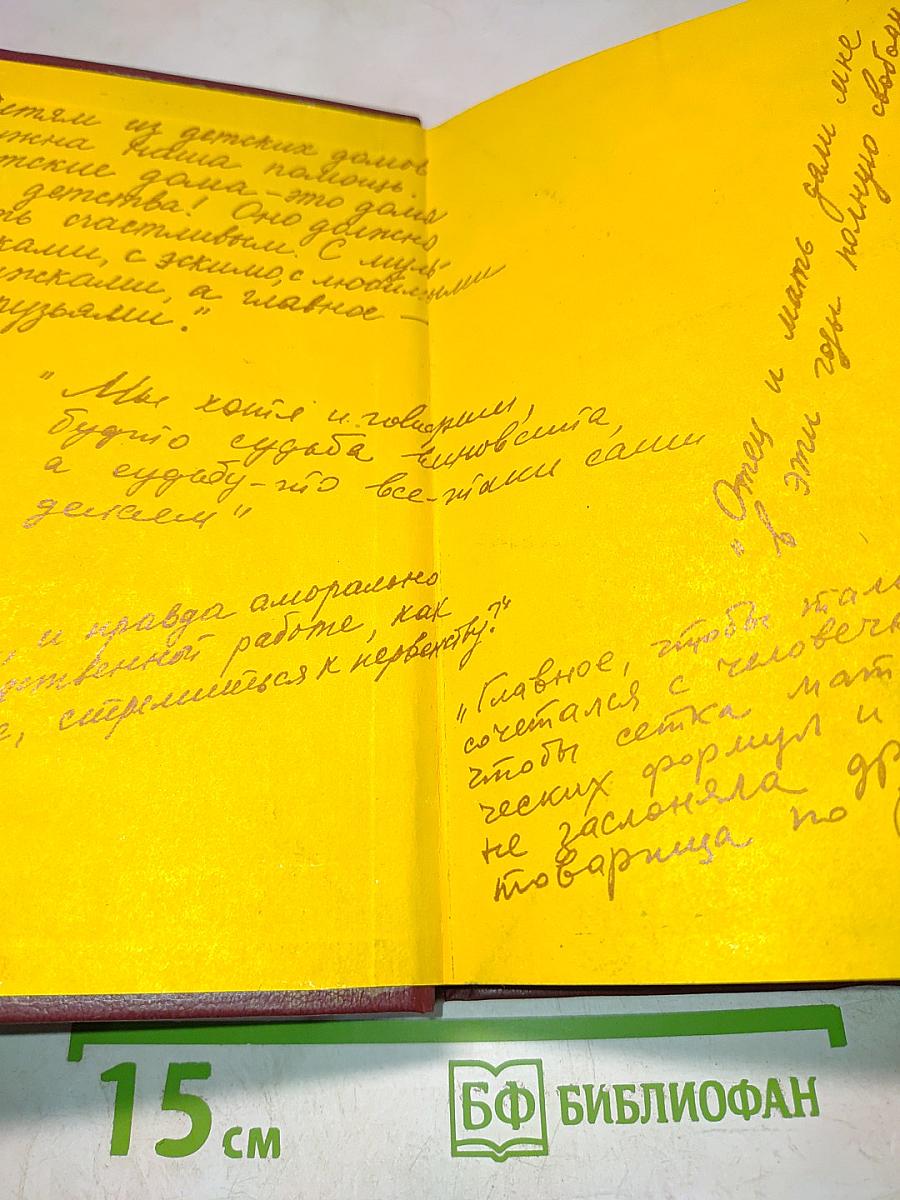 детям из детских домов
нужна наша помощь.
детские дома - это дома
детства! Оно должно
быть счастливым. С муль-
ками, с эскимо, с любимыми
книжками, а главное -
друзьями."
"Мы хотя и говорим,
будто судьба виновата,
а судьбу-то все-таки сами
делаем"
, и правда аморально
ственной работе, как
е, стремиться к первенству?"
"Отец и мать дали мне
в эти годы полную свободу
"Главное, чтобы тал
сочетался с человеч
чтобы сетка мат
ческих формул и
не заслоняла др
товарища по
15 см
БФ БИБЛИОФАН